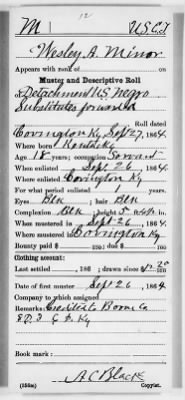 M | U.S.C.T.
12
Wesley A. Minor
Appears with rank of
Muster and Descriptive Roll
of Detachment U.S. Negro
Substitutes forwarded
Roll dated
Covington Ky Sep 27, 1864.
Where born Kentucky
Age 18 years; occupation Servant
When enlisted Sept 26, 1864.
Where enlisted Covington Ky
For what period enlisted 1 years.
Eyes Blk; hair Blk
Complexion Blk; height 5 ft. in.
When mustered in Sept 26, 1864.
Where mustered in Covington Ky
Bounty paid $ 100; due $ 100
Clothing account:
Last settled , 186 ; drawn since $ 20 100
Date of first muster Sept 26, 1864
Company to which assigned
Remarks: Credited to Boone Co
Ky
Book mark:
A C Black
(356m) Copyist.